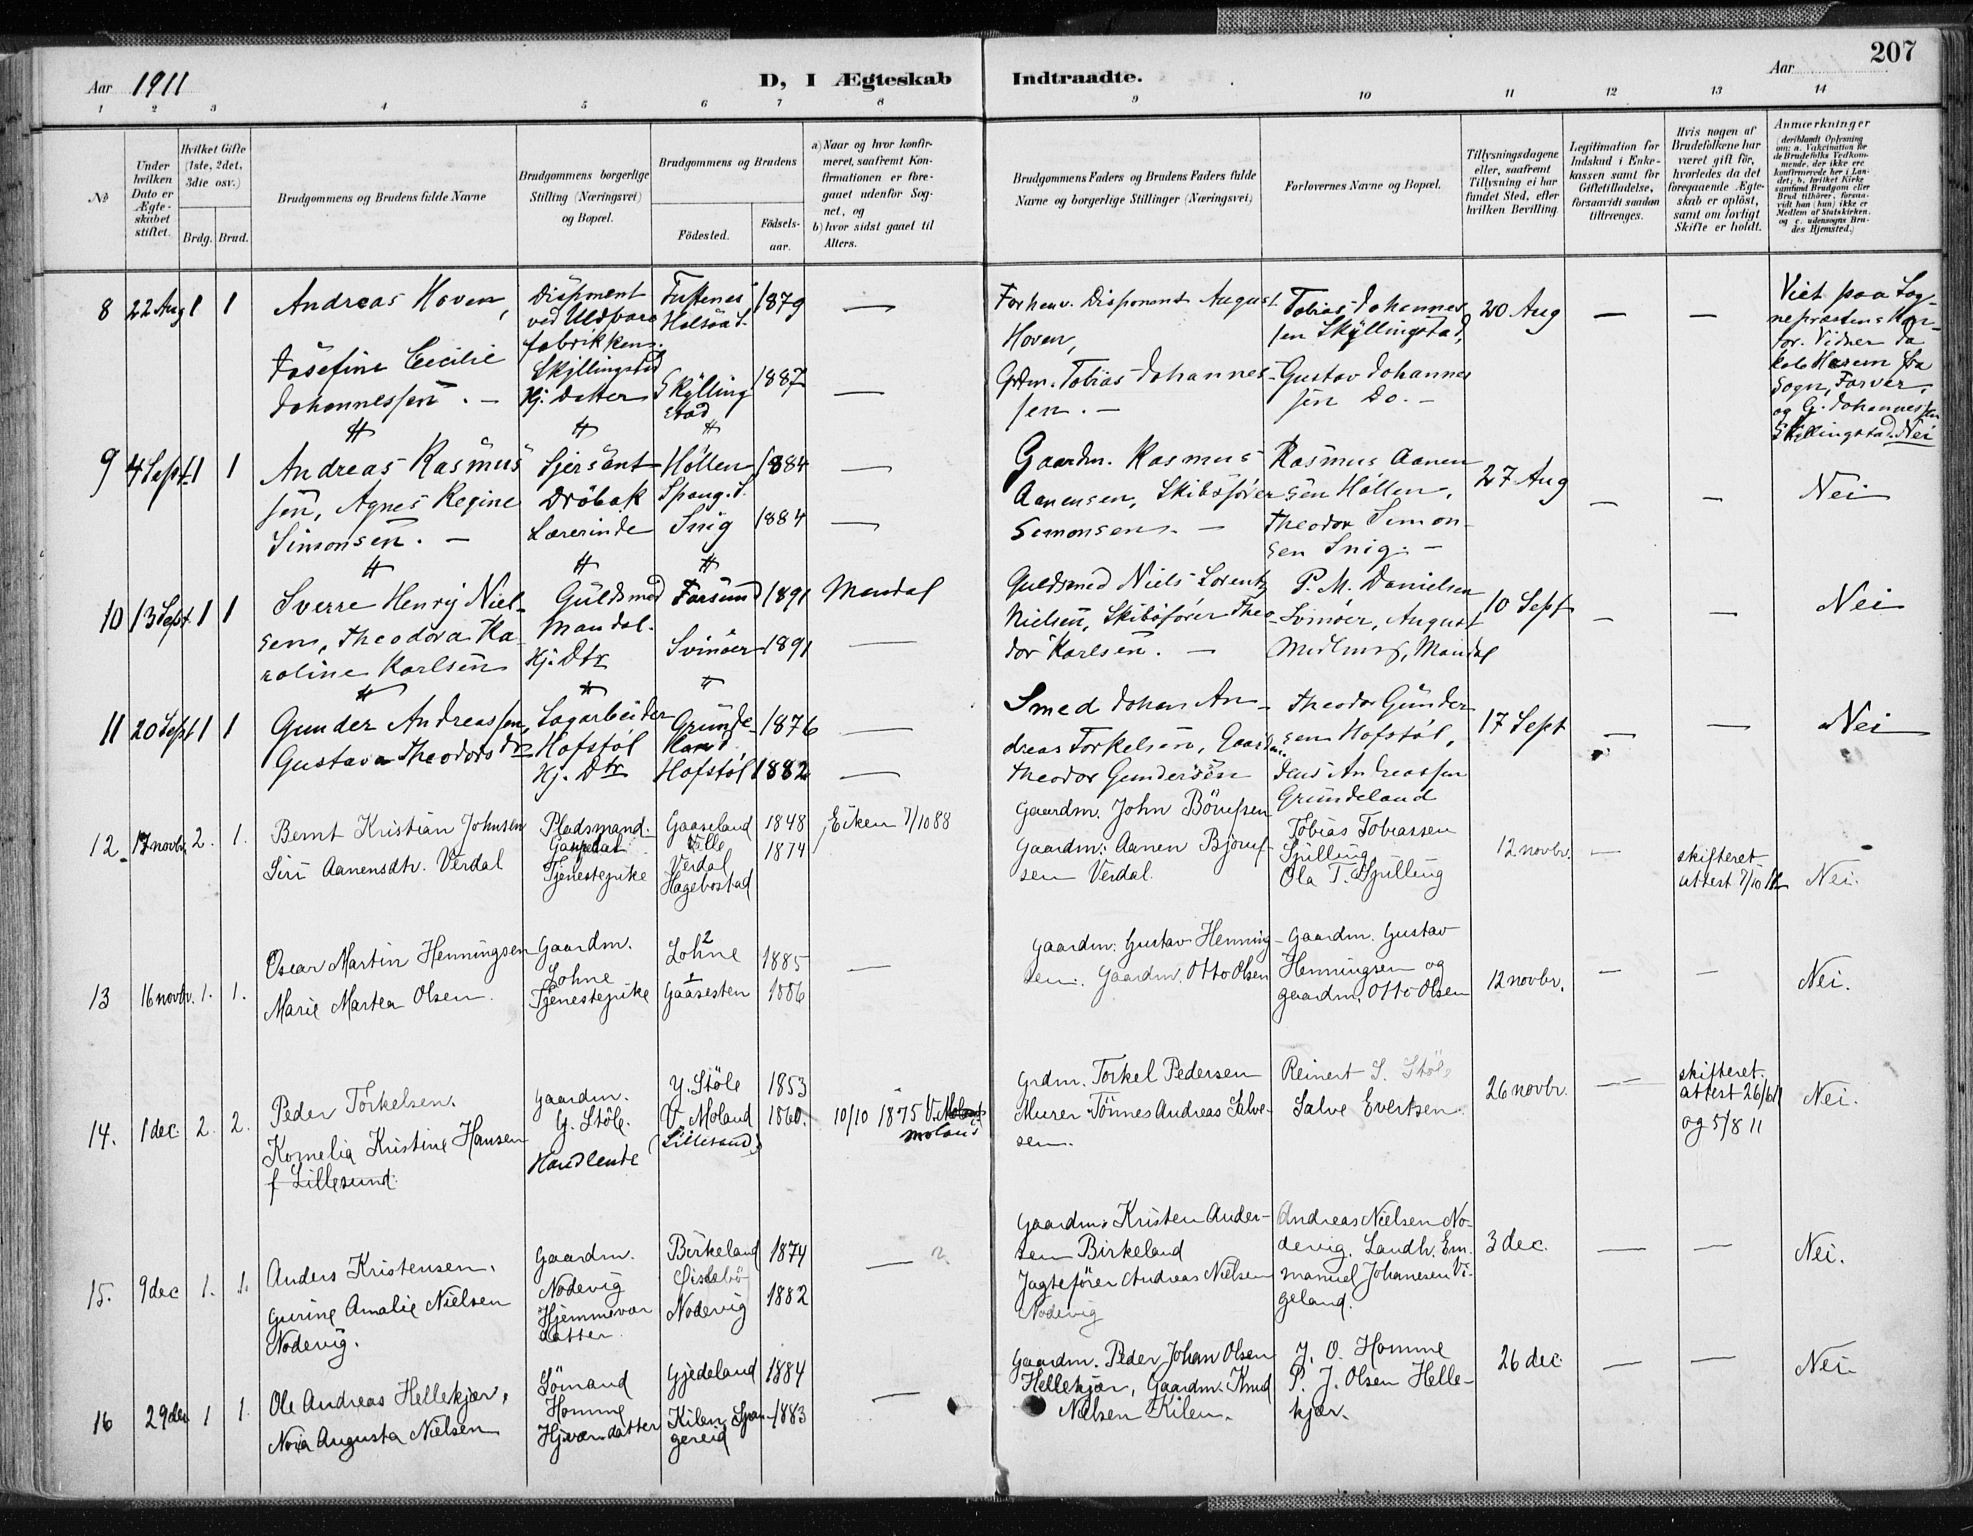 207
Aar 1911 D, I Ægteskab Indtraadte. Aar
1 2 3 4 5 6 7 8 9 10 11 12 13 14
No
Under hvilken Dato er Ægteskabet stiftet.
Hvilket Gifte (1ste, 2det, 3die osv.)
Brdg. Brud.
Brudgommens og Brudens fulde Navne
Brudgommens borgerlige Stilling (Næringsvei) og Bopæl.
Brudgommens og Brudens
Fødested.
Fødselsaar.
a) Naar og hvor konfirmeret, saafremt Konfirmationen er foregaaet udenfor Sognet, og
b) hvor sidst gaaet til Alters.
Brudgommens Faders og Brudens Faders fulde Navne og borgerlige Stillinger (Næringsvei)
Forlovernes Navne og Bopæl.
Tillysningsdagene eller, saafremt Tillysning ei har fundet Sted, efter hvilken Bevilling.
Legitimation for Indskud i Enkekassen samt for Giftetilladelse, forsaavidt saadan tiltrænges.
Hvis nogen af Brudefolkene har været gift før, hvorledes da det foregaaende Ægteskab er opløst, samt om lovligt Skifte er holdt.
Anmærkninger (deriblandt Oplysning om: a. Vakcination for de Brudefolks Vedkommende, der ikke ere konfirmerede her i Landet; b. hvilket Kirkesamfund Brudgom eller Brud tilhører, forsaavidt han (hun) ikke er Medlem af Statskirken. og c. udensogns Brudes Hjemsted.)
8 22 Aug 1 1
Andreas Hoven,
Josefine Cecilie
Johannessen. —
Disponent
ved Uldvare
fabrikken.
Skjllingstad
Hj. Datter
Holsöa S.
1879
Skÿlling
stad
1887
—
—
Forhenv. Disponent August
Hoven,
Grdm. Tobias Johannes-
sen. —
Tobias Johannes
sen Skÿllingstad,
Gustav Johannes
sen Do. —
20 Aug
—
—
Viet paa Sog-
neprestens Kon-
tor. Vidner Ja
kob Hasem
Sogn, Farver,
og G. Johannessen
Skÿllingstad. Nei
9 4 Sept 1 1
Andreas Rasmus
sen, Agnes Regine
Simonsen. —
Sjersant
Dröbak
Lærerinde
Höllen
Spang. S.
Snig
1884
1884
—
—
Gaardm. Rasmus
Aanensen, Skibsfører
Simonsen. —
Rasmus Aanen
sen Höllen,
Theodor Simon-
sen Snig. —
27 Aug
—
—
Nei
10 13 Sept. 1 1
Sverre Henrij Niel-
sen, Theodora Ka-
roline Karlsen
Guldsmed
Mandal.
Hj. Dtr
Farsund
Svinöer
1891
1891
Mandal
—
Guldsmed Niels Lorentz
Nielsen, Skibsfører Theo-
dor Karlsen. —
P. M. Danielsen
Svinöer, August
Mandal
10 Sept
—
—
Nei
11 20 Sept 1 1
Gunder Andreassen,
Gustava Theodorsdtr
Sagarbeider
Hofstöl
Hj. Dtr
Grunde-
land
Hofstöl
1876
1882
—
—
Smed Johan An-
dreas Torkelsen, Gaardm.
Theodor Gundersen
Theodor Gunder
sen Hofstöl,
Jens Andreassen
Grundeland
17 Sept
—
—
Nei
12. 17 novbr. 2. 1.
Bernt Kristian Johnsen
Siri Aanensdtr. Verdal
Pladsmand.
Tjenestepike
Gaaseland
Verdal
Hagebostad
1848
1874
Eiken 7/10 88
Gaardm. John Börufsen
Gaardm. Aanen Björuf-
sen Verdal.
Tobias Tobiassen
Spilling
Ola T. Spilling
12 novbr.
—
skifteret
attest 7/10 11
Nei.
13 16 novbr. 1. 1.
Oscar Martin Henningsen
Marie Martea Olsen.
Gaardm.
Lohne
Tjenestepike
Lohne
Gaasesten
1885
1886
—
Gaardm. Gustav Henning-
sen. Gaardm. Otto Olsen
Gaardm. Gustav
Henningsen og
gaardm. Otto Olsen
12 novbr.
—
—
Nei.
14. 1 dec. 2. 2.
Peder Torkelsen.
Kornelia Kristine Hansen
f Lillesund.
Gaardm.
Y. Stöle.
Handlende
Y. Stöle
V. Moland
(Lillesand)
1853
1860.
10/10 1875 V. Moland
Moland
Grdm. Torkel Pedersen
Murer Tönnes Andreas Salve-
sen.
Reinert S. Stöle
Salve Evertsen.
26 novbr.
—
skifteret.
attest 26/6 11
og 5/8 11
Nei.
15. 9 dec 1. 1.
Anders Kristensen.
Gurine Amalie Nielsen
Nodevig.
Gaardm.
Nodevig
Hjemmevær
datter.
Birkeland
Öislebö
Nodevig
1874
1882
— ?
Gaardm. Kristen Ander-
sen Birkeland
Jagtefører Andreas Nielsen
Nodevig
Andreas Nielsen No-
devig. Landh. Em-
manuel Johanesen Vi-
geland.
3 dec.
—
—
Nei.
16 29 dec 1 1.
Ole Andreas Hellekjær,
Nora Augusta Nielsen
Sömand
Homme
Hj.værdatter
Gjedeland
Kilen Span-
gereid
1884
1883
—
Gaardm. Peder Johan Olsen
Hellekjær, Gaardm. Knud
Nielsen Kilen.
Y. O. Homme
P. J. Olsen Helle-
kjær.
26 dec
—
—
Nei